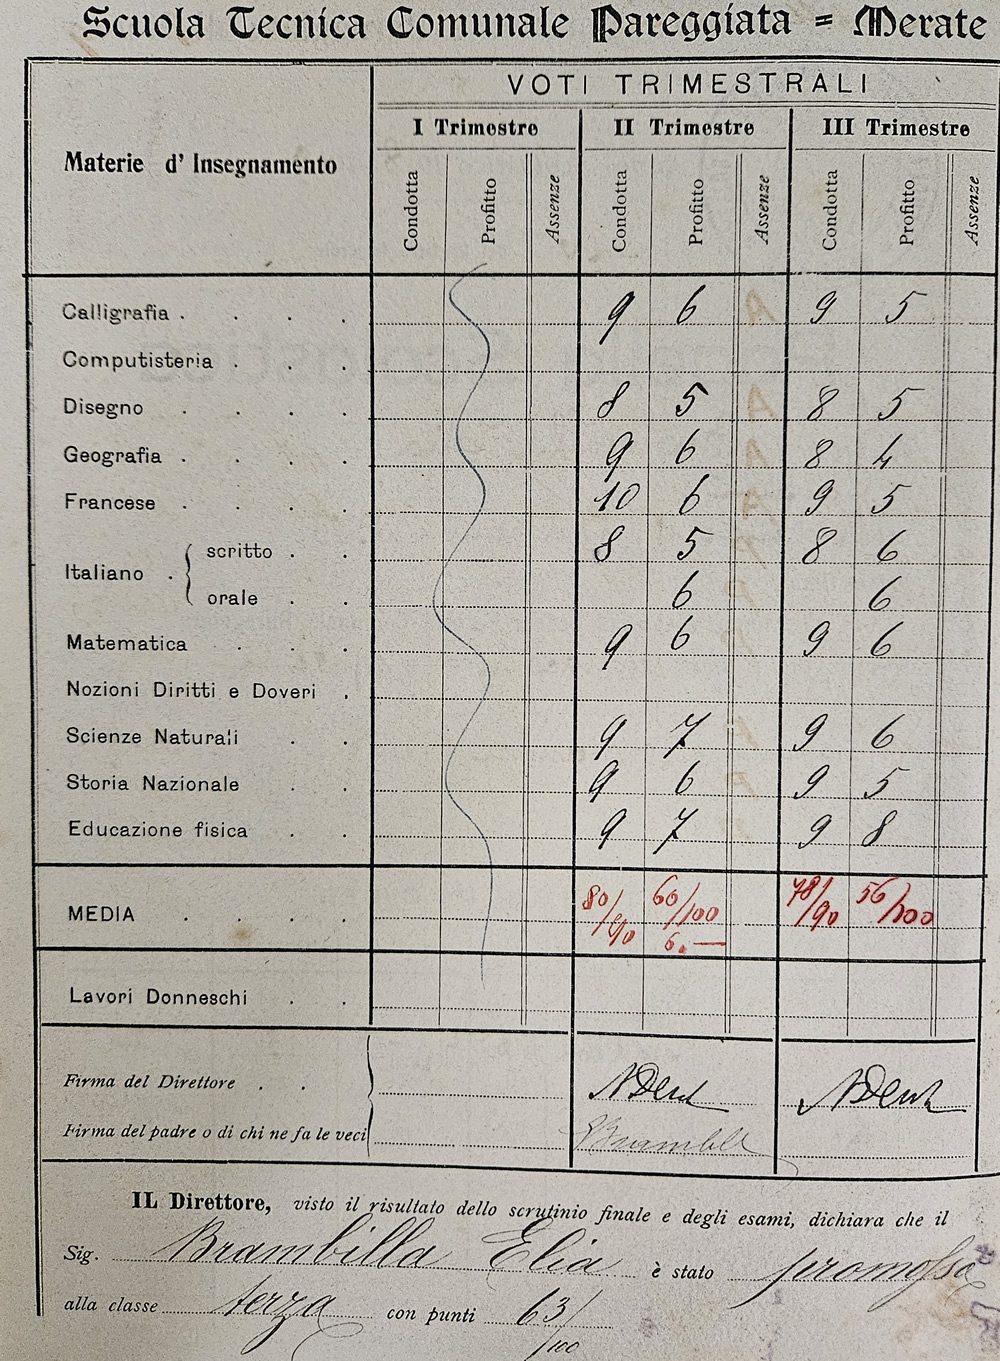 Scuola Tecnica Comunale Pareggiata = Merate
VOTI TRIMESTRALI
Materie d' Insegnamento
I Trimestre II Trimestre III Trimestre
Condotta Profitto Assenze Condotta Profitto Assenze Condotta Profitto Assenze
Calligrafia . . . . 9 6 9 5
Computisteria . . .
Disegno . . . . 8 5 8 5
Geografia . . . . 9 6 8 4
Francese . . . . 10 6 9 5
Italiano . { scritto . . 8 5 8 6
orale . . 6 6
Matematica . . . 9 6 9 6
Nozioni Diritti e Doveri .
Scienze Naturali . . 9 7 9 6
Storia Nazionale . . 9 6 9 5
Educazione fisica . . 9 7 9 8
MEDIA . . . . 80/90 60/100 78/90 56/100
6.—
Lavori Donneschi . .
Firma del Direttore . .
Firma del padre o di chi ne fa le veci Brambill
IL Direttore, visto il risultato dello scrutinio finale e degli esami, dichiara che il
Sig. Brambilla Elia è stato promosso
alla classe terza con punti 63/100